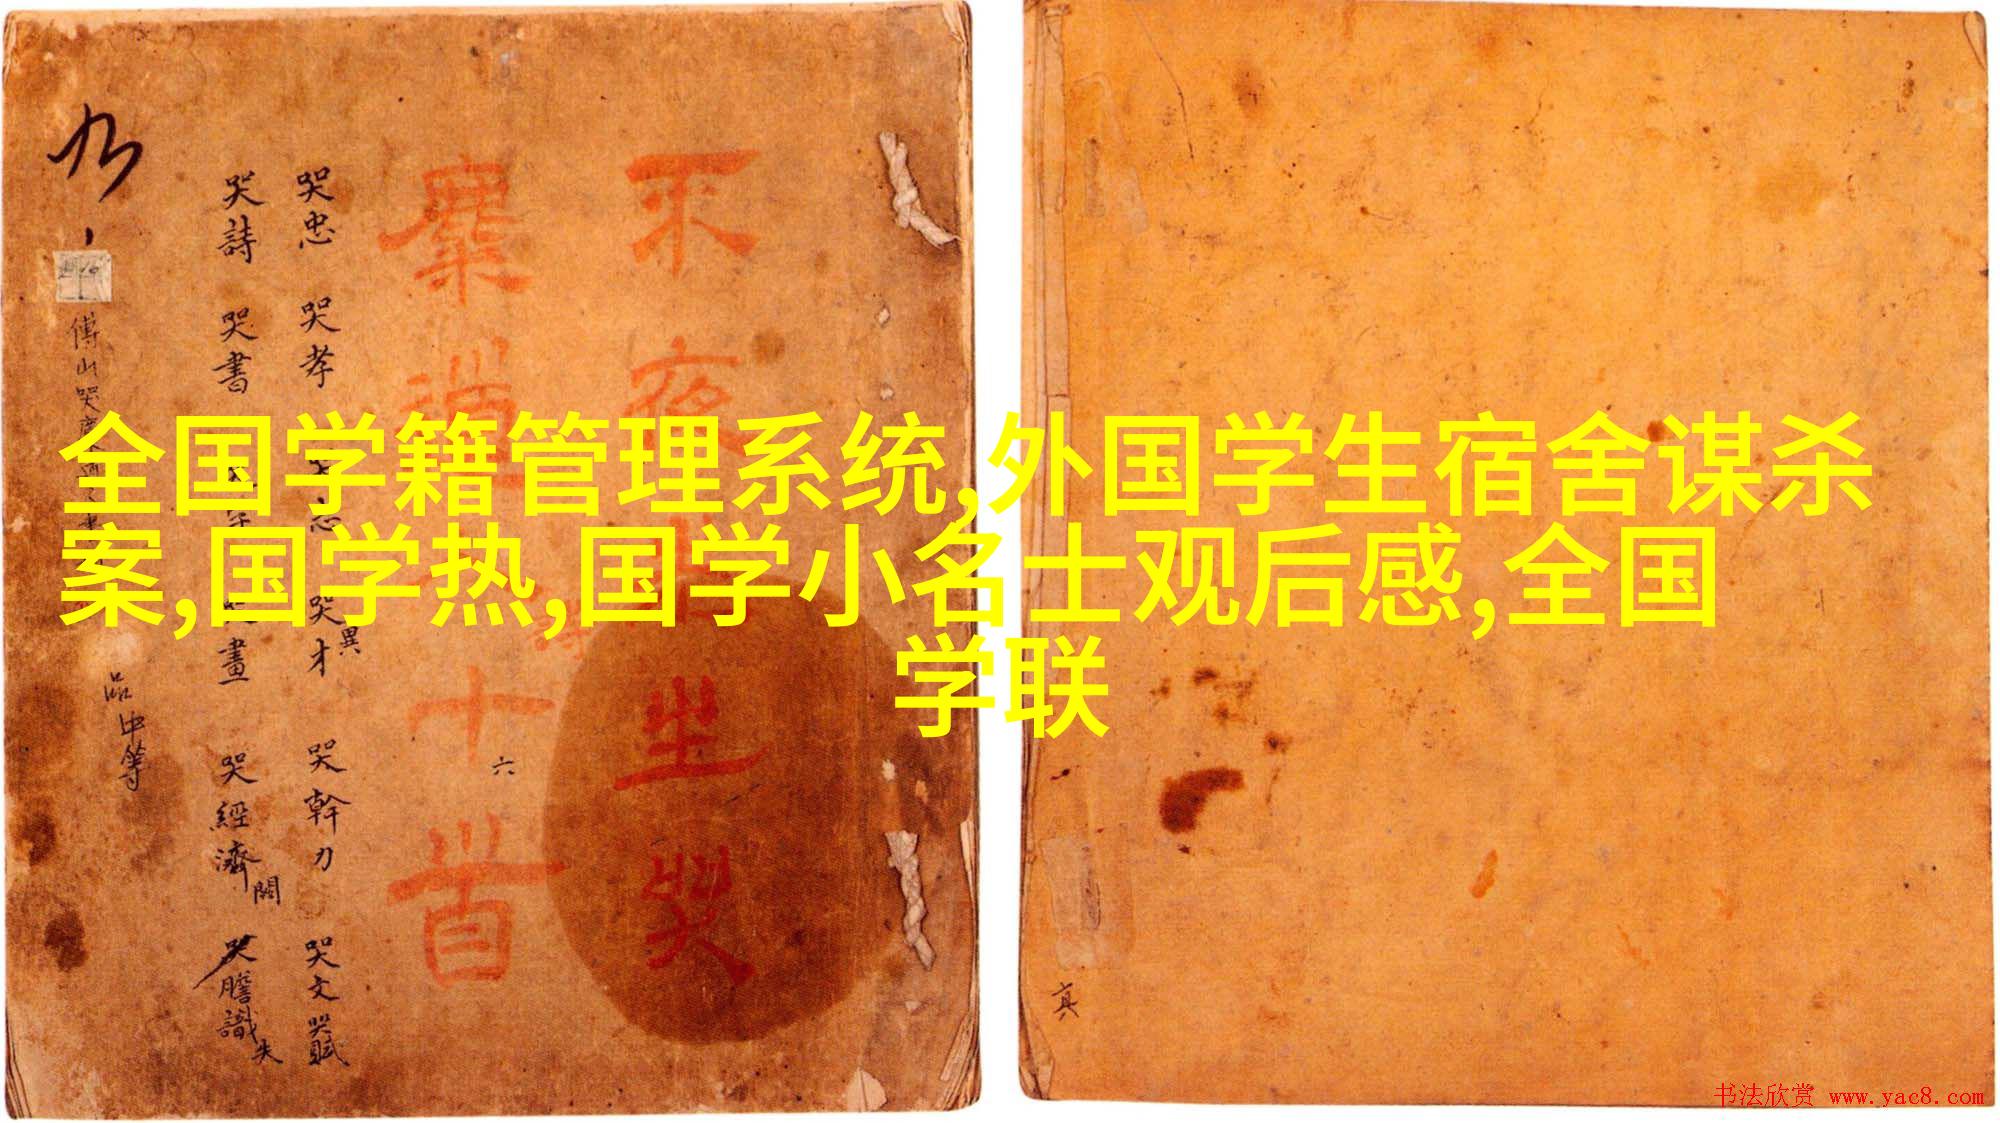 全国学籍管理系统,外国学生宿舍谋杀
案,国学热,国学小名士观后感,全国
学联
不夜 坐哭
道 十首
六
哭忠 哭孝 哭才異 哭幹力 哭文哭賦
哭詩 哭書 畫 哭經濟 哭膽識
傅山哭
品中等
真
书法欣赏 www.yac8.com